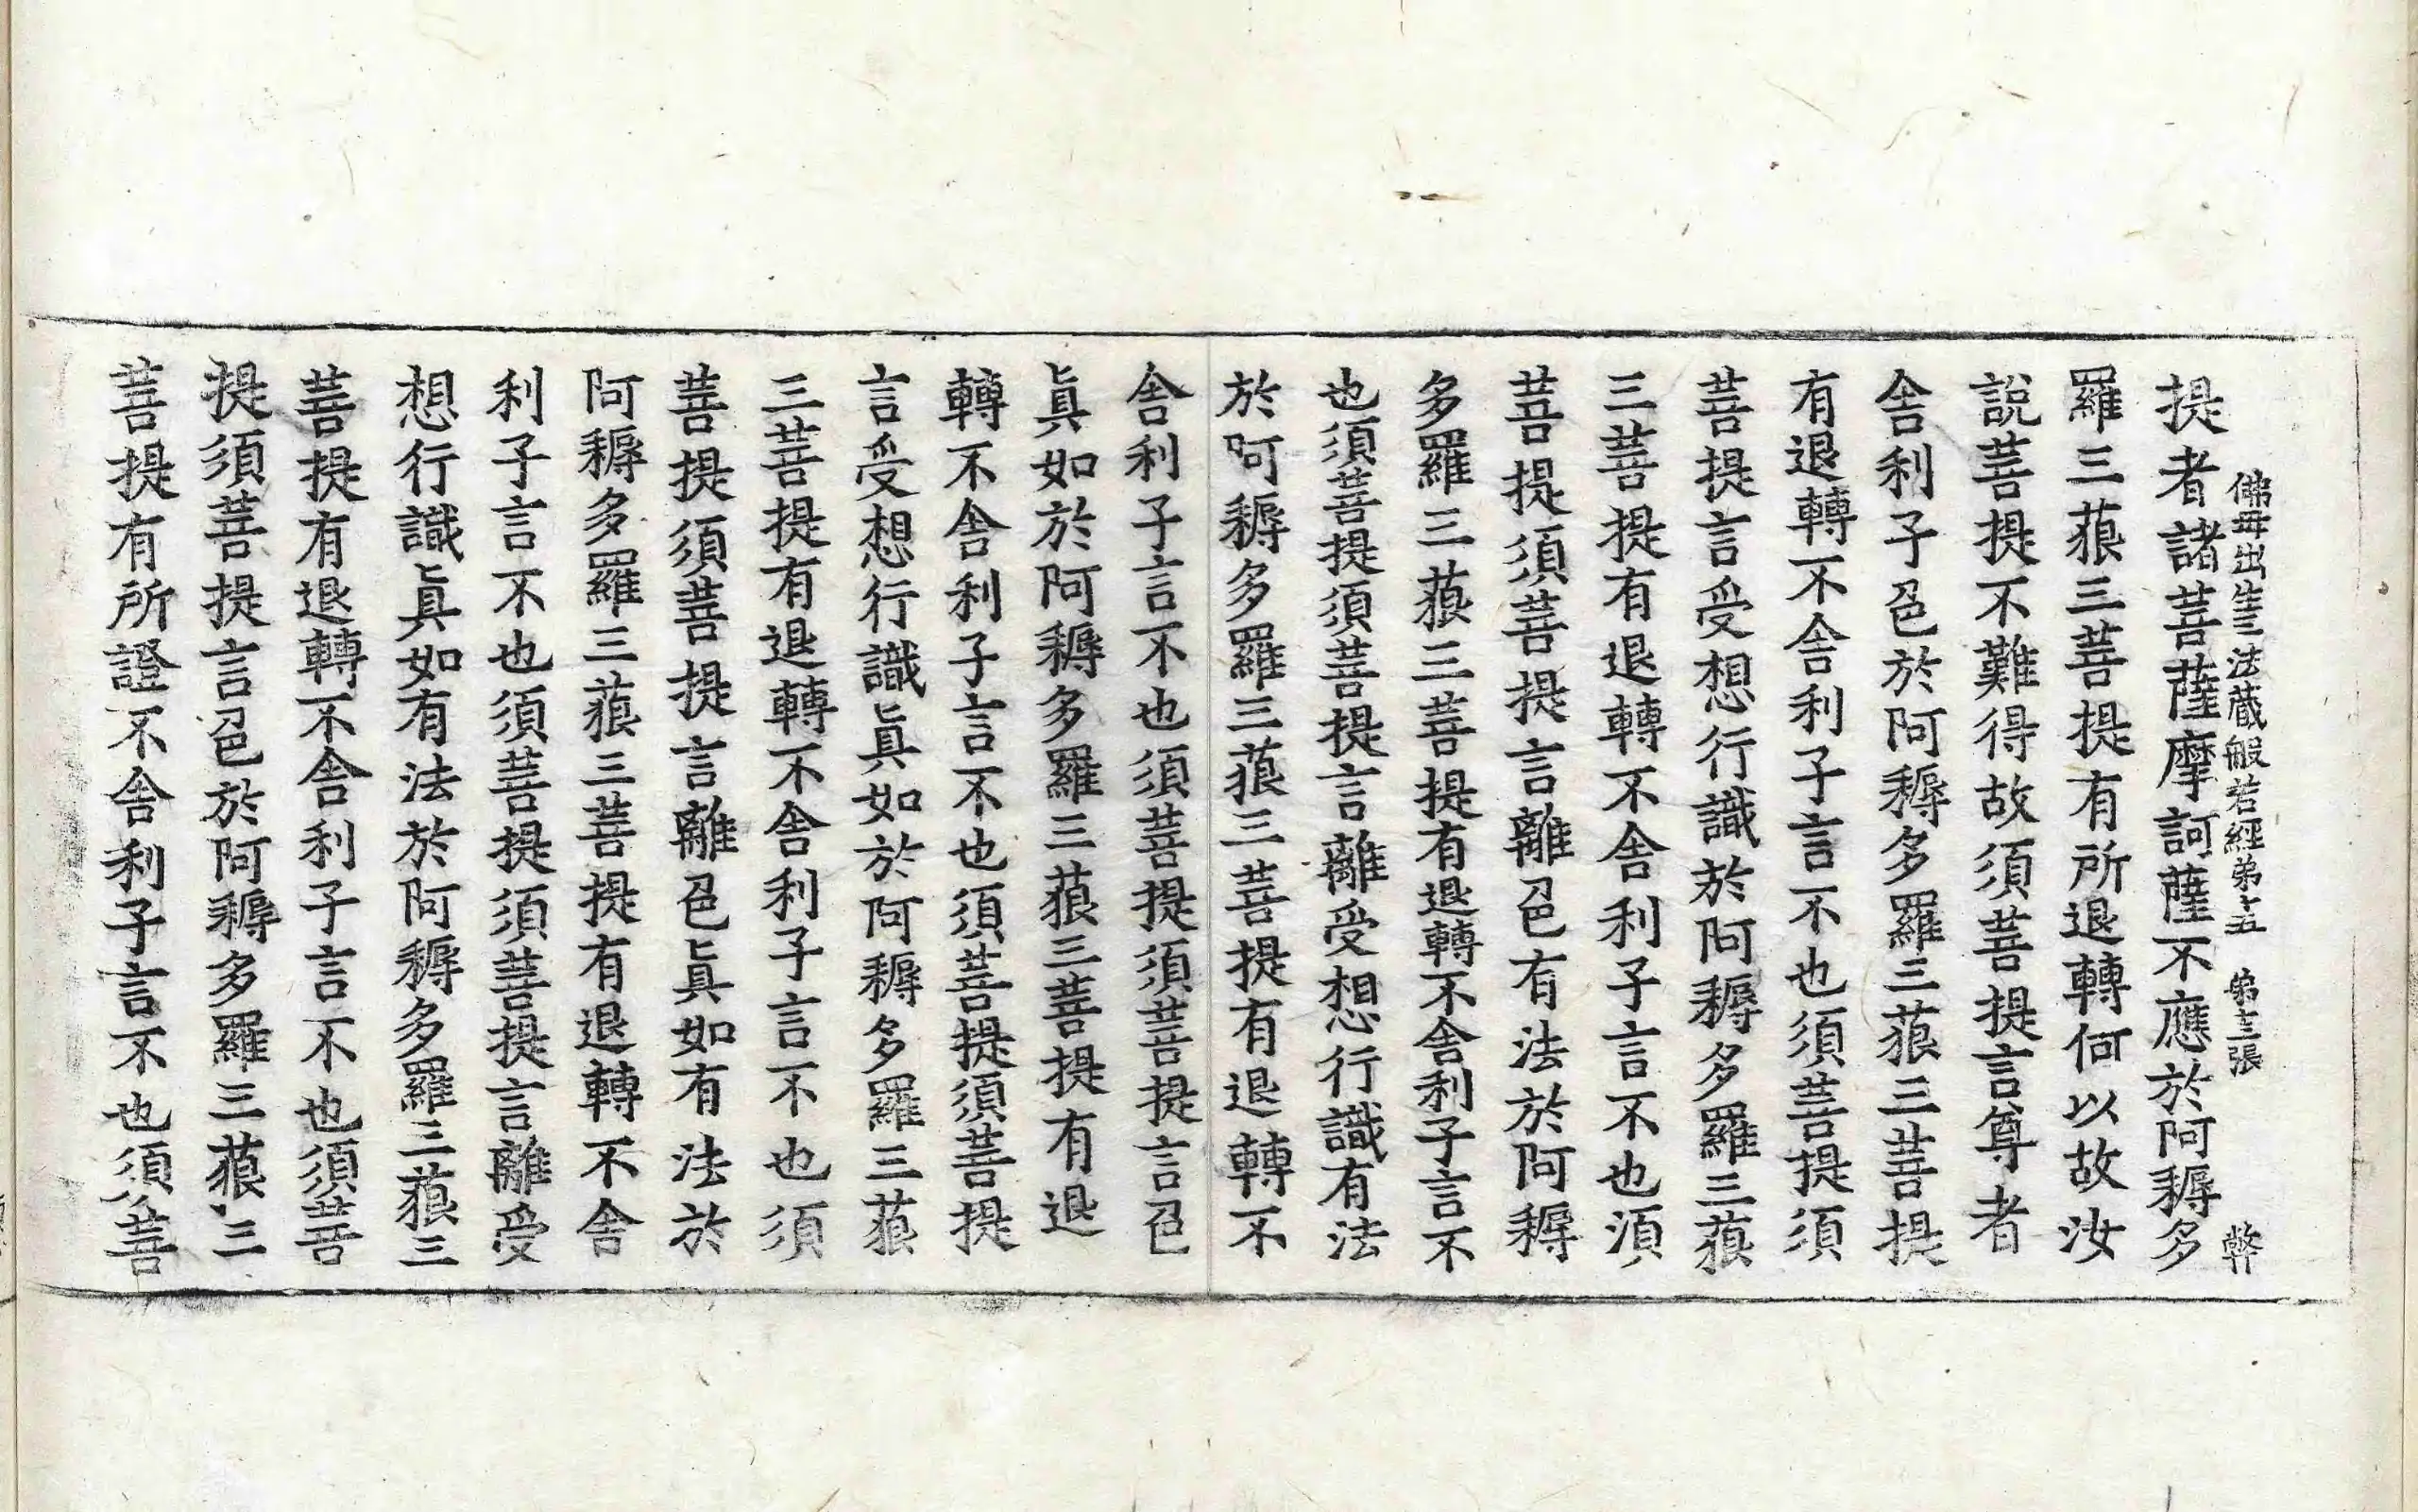 佛母出生三法藏般若經第十五　第十三張　弊
提者諸菩薩摩訶薩不應於阿耨多
羅三藐三菩提有所退轉何以故汝
說菩提不難得故須菩提言尊者
舍利子色於阿耨多羅三藐三菩提
有退轉不舍利子言不也須菩提須
菩提言受想行識於阿耨多羅三藐
三菩提有退轉不舍利子言不也須
菩提須菩提言離色有法於阿耨
多羅三藐三菩提有退轉不舍利子言不
也須菩提須菩提言離受想行識有法
於阿耨多羅三藐三菩提有退轉不
舍利子言不也須菩提須菩提言色
眞如於阿耨多羅三藐三菩提有退
轉不舍利子言不也須菩提須菩提
言受想行識眞如於阿耨多羅三藐
三菩提有退轉不舍利子言不也須
菩提須菩提言離色眞如有法於
阿耨多羅三藐三菩提有退轉不舍
利子言不也須菩提須菩提言離受
想行識眞如有法於阿耨多羅三藐三
菩提有退轉不舍利子言不也須菩
提須菩提言色於阿耨多羅三藐三
菩提有所證不舍利子言不也須菩